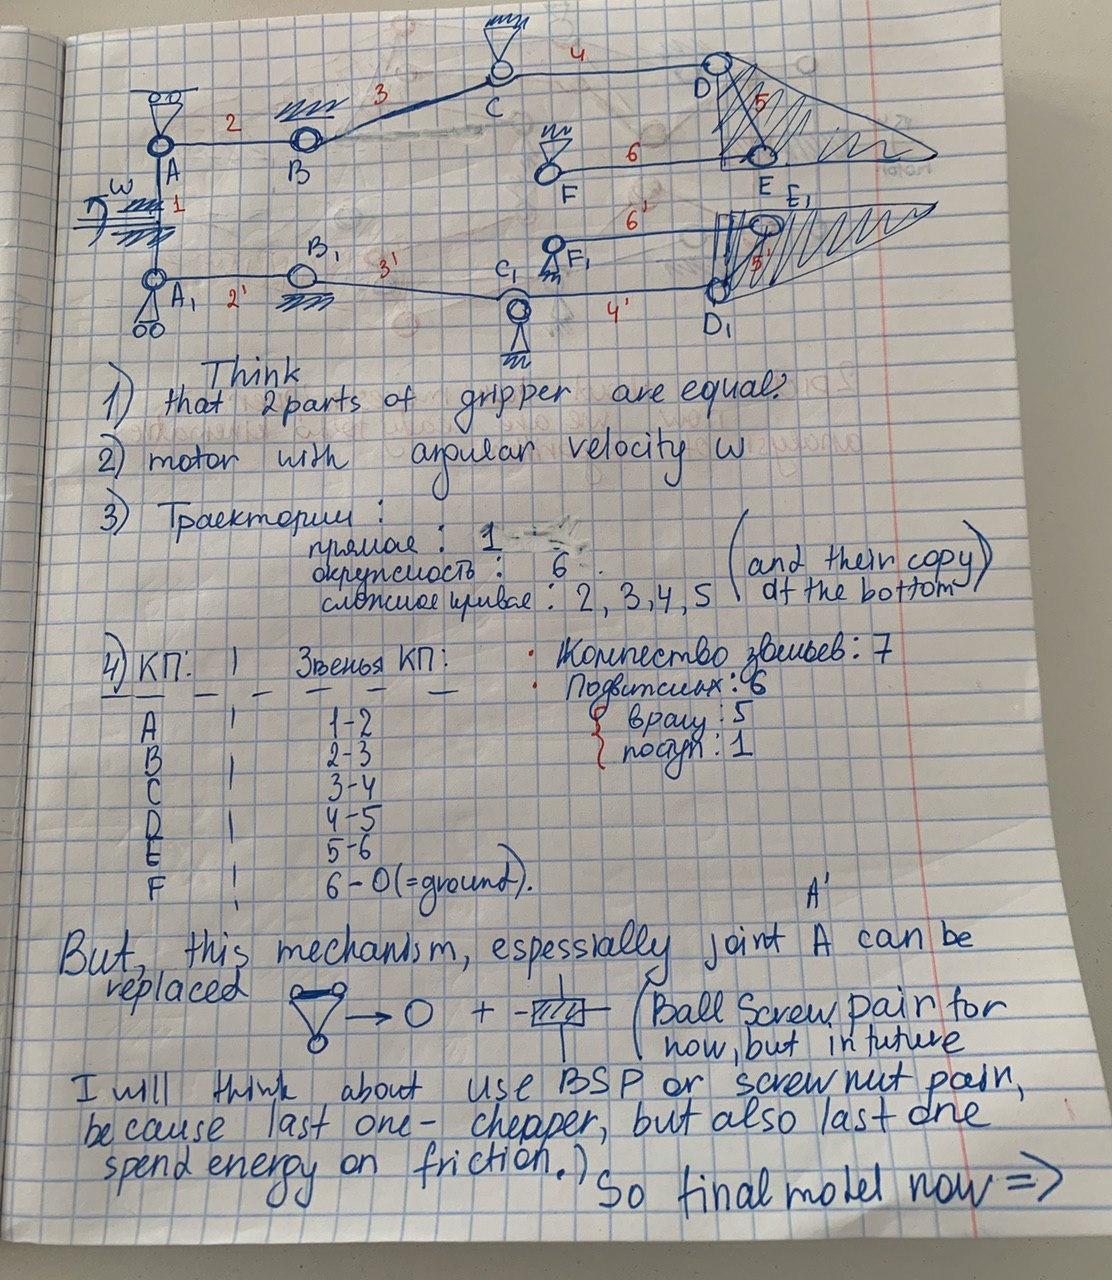 4
C
D
5
3
2
A
B
6
F
E
E₁
ω
1
B₁
6'
F₁
5'
3'
C₁
A₁
2'
4'
D₁
Think
1) that 2 parts of gripper are equal?
2) motor with angular velocity ω
3) Траектории :
прямая : 1
окружность : 6 .
сложная кривая : 2, 3, 4, 5
(and their copy
at the bottom)
4) КП: | Звенья КП:
A | 1-2
B | 2-3
C | 3-4
D | 4-5
E | 5-6
F | 6-0 (=ground).
• Количество звеньев: 7
• Подвижных : 6
{ вращ : 5
поступ : 1
A'
But, this mechanism, espessially joint A can be
replaced → O + (Ball Screw pair for
now, but in future
I will think about use BSP or screw nut pair,
because last one - cheaper, but also last one
spend energy on friction.)
So final model now =>